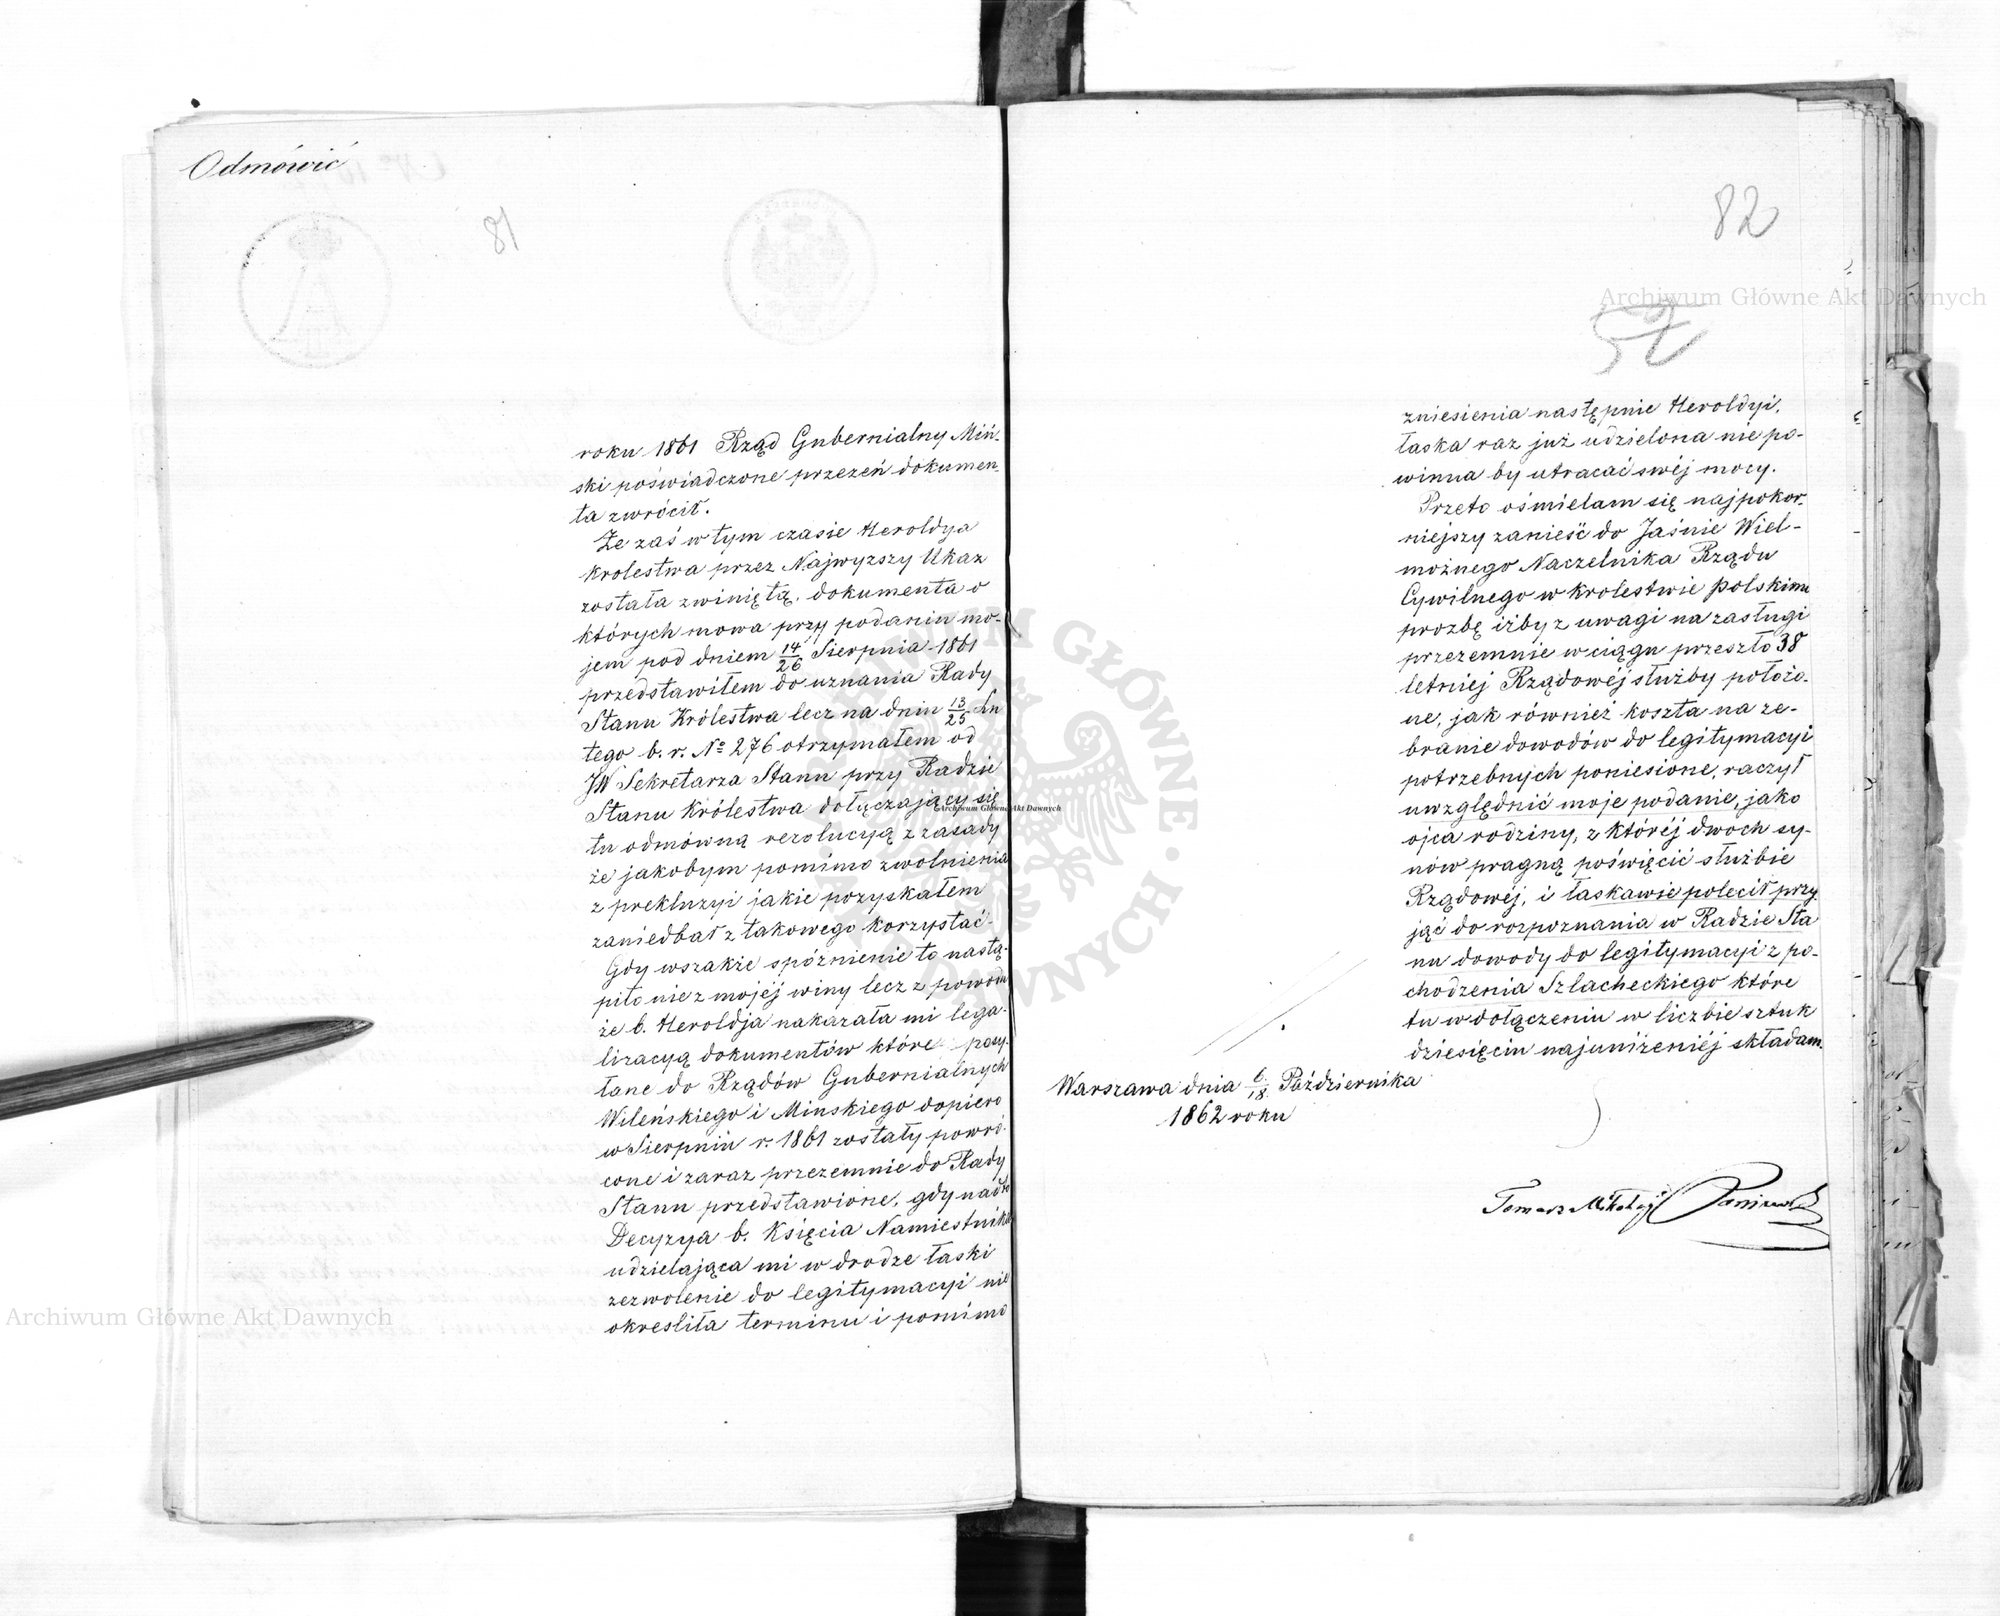 Odmówić
81
roku 1861 Rząd Gubernialny Miń-
ski poświadczone przezeń dokumen-
ta zwrócił.
Że zaś w tym czasie Heroldya
Krolestwa przez Najwyzszy Ukaz
została zwiniętą, dokumenta o
których mowa przy podaniu mo-
jem pod dniem 14/26 Sierpnia 1861
przedstawiłem do uznania Rady
Stanu Królestwa lecz na dniu 13/25 Lu
tego b. r. № 276 otrzymałem od
JW Sekretarza Stanu przy Radzie
Stanu Królestwa dołączający się
tu odmówną rezolucyą z zasady
że jakobym pomimo zwolnienia
z prekluzyi jakie pozyskałem
zaniedbał z takowego korzystać.
Gdy wszakże spóźnienie to nastą-
piło nie z mojéj winy lecz z powodu
że b. Heroldja nakazała mi lega-
lizacyą dokumentów które posy-
łane do Rządów Gubernialnych
Wileńskiego i Minskiego dopiero
w Sierpniu r. 1861 zostały powró-
cone i zaraz przezemnie do Rady
Stanu przedstawione, gdy nadto
Decyzya b. Księcia Namiestnika
udzielająca mi w drodze łaski
zezwolenie do legitymacyi nie
okresliła terminu i pomimo
82
52
zniesienia następnie Heroldyi,
łaska raz już udzielona nie po-
winna by utracać swéj mocy.
Przeto ośmielam się najpokor-
niejszy zanieść do Jaśnie Wiel-
możnego Naczelnika Rządu
Cywilnego w Krolestwie Polskim
prozbę iżby z uwagi na zasługi
przezemnie w ciągu przeszło 38
letniej Rządowéj służby położo-
ne, jak również koszta na ze-
branie dowodów do legitymacyi
potrzebnych poniesione, raczył
uwzględnić moje podanie, jako
ojca rodziny, z któréj dwoch sy-
nów pragną poświęcić służbie
Rządowéj, i łaskawie polecił przy
jąć do rozpoznania w Radzie Sta
nu dowody do legitymacyi z po-
chodzenia Szlacheckiego które
tu w dołączeniu w liczbie sztuk
dziesięciu najuniżeniéj składam.
Warszawa dnia 6/18 Października
1862 roku
Tomasz Mikołaj
Archiwum Główne Akt Dawnych
Archiwum Główne Akt Dawnych
Archiwum Główne Akt Dawnych
ARCHIWUM GŁÓWNE AKT DAWNYCH